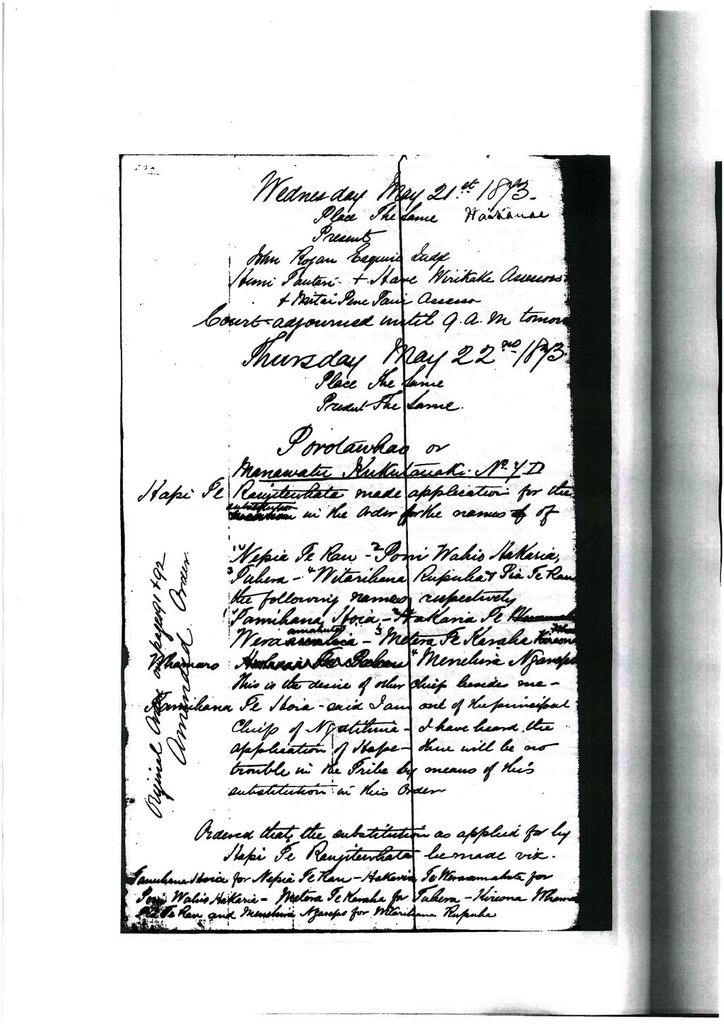 Wednesday May 21st 1873
Place The Same Waikanae
Present
John Rogan Esquire Judge
Hemi Tautari + Hare Wirikake Assessors
+ Matai Pene Taui Assessor
Court adjourned until 9. A. M
Thursday May 22nd 1873
Place The Same
Present The Same.
Porotawhao or
Manawatu Kukutauaki No 7 D
Hapi Te Rangitewhata made application for the
substitution in the Order for the names of
1 Nepia Te Rau - 2 Poni Wahio Hakaria,
3 Tuhera - 4 Witarihana Rupuha & Pia Te Rau
the following names respectively
1 Tamihana Hoia - 2 Hakaria Te
Wera - 3 Metera Te Karaha
Whamaro 4 Menehira
This is the desire of other Chief besides me -
Tamihana Te Hoia - said I am one of the principal
Chiefs of - I have heard the
application of Hape - there will be no
trouble in the Tribe by means of this
substitution in this Order
Ordered that the substitution as applied for by
Hapi Te Rangitewhata be made viz.
Tamihana Hoia for Nepia Te Rau - Hakaria Te Weraamahuta for
Poni Wahio Hakaria - Metera Te Karaha for Tuhera - Kireona
Pia Te Rau and Menehira for Witarihana Rupuha
Original Order on pages 91 + 92
Amended Order